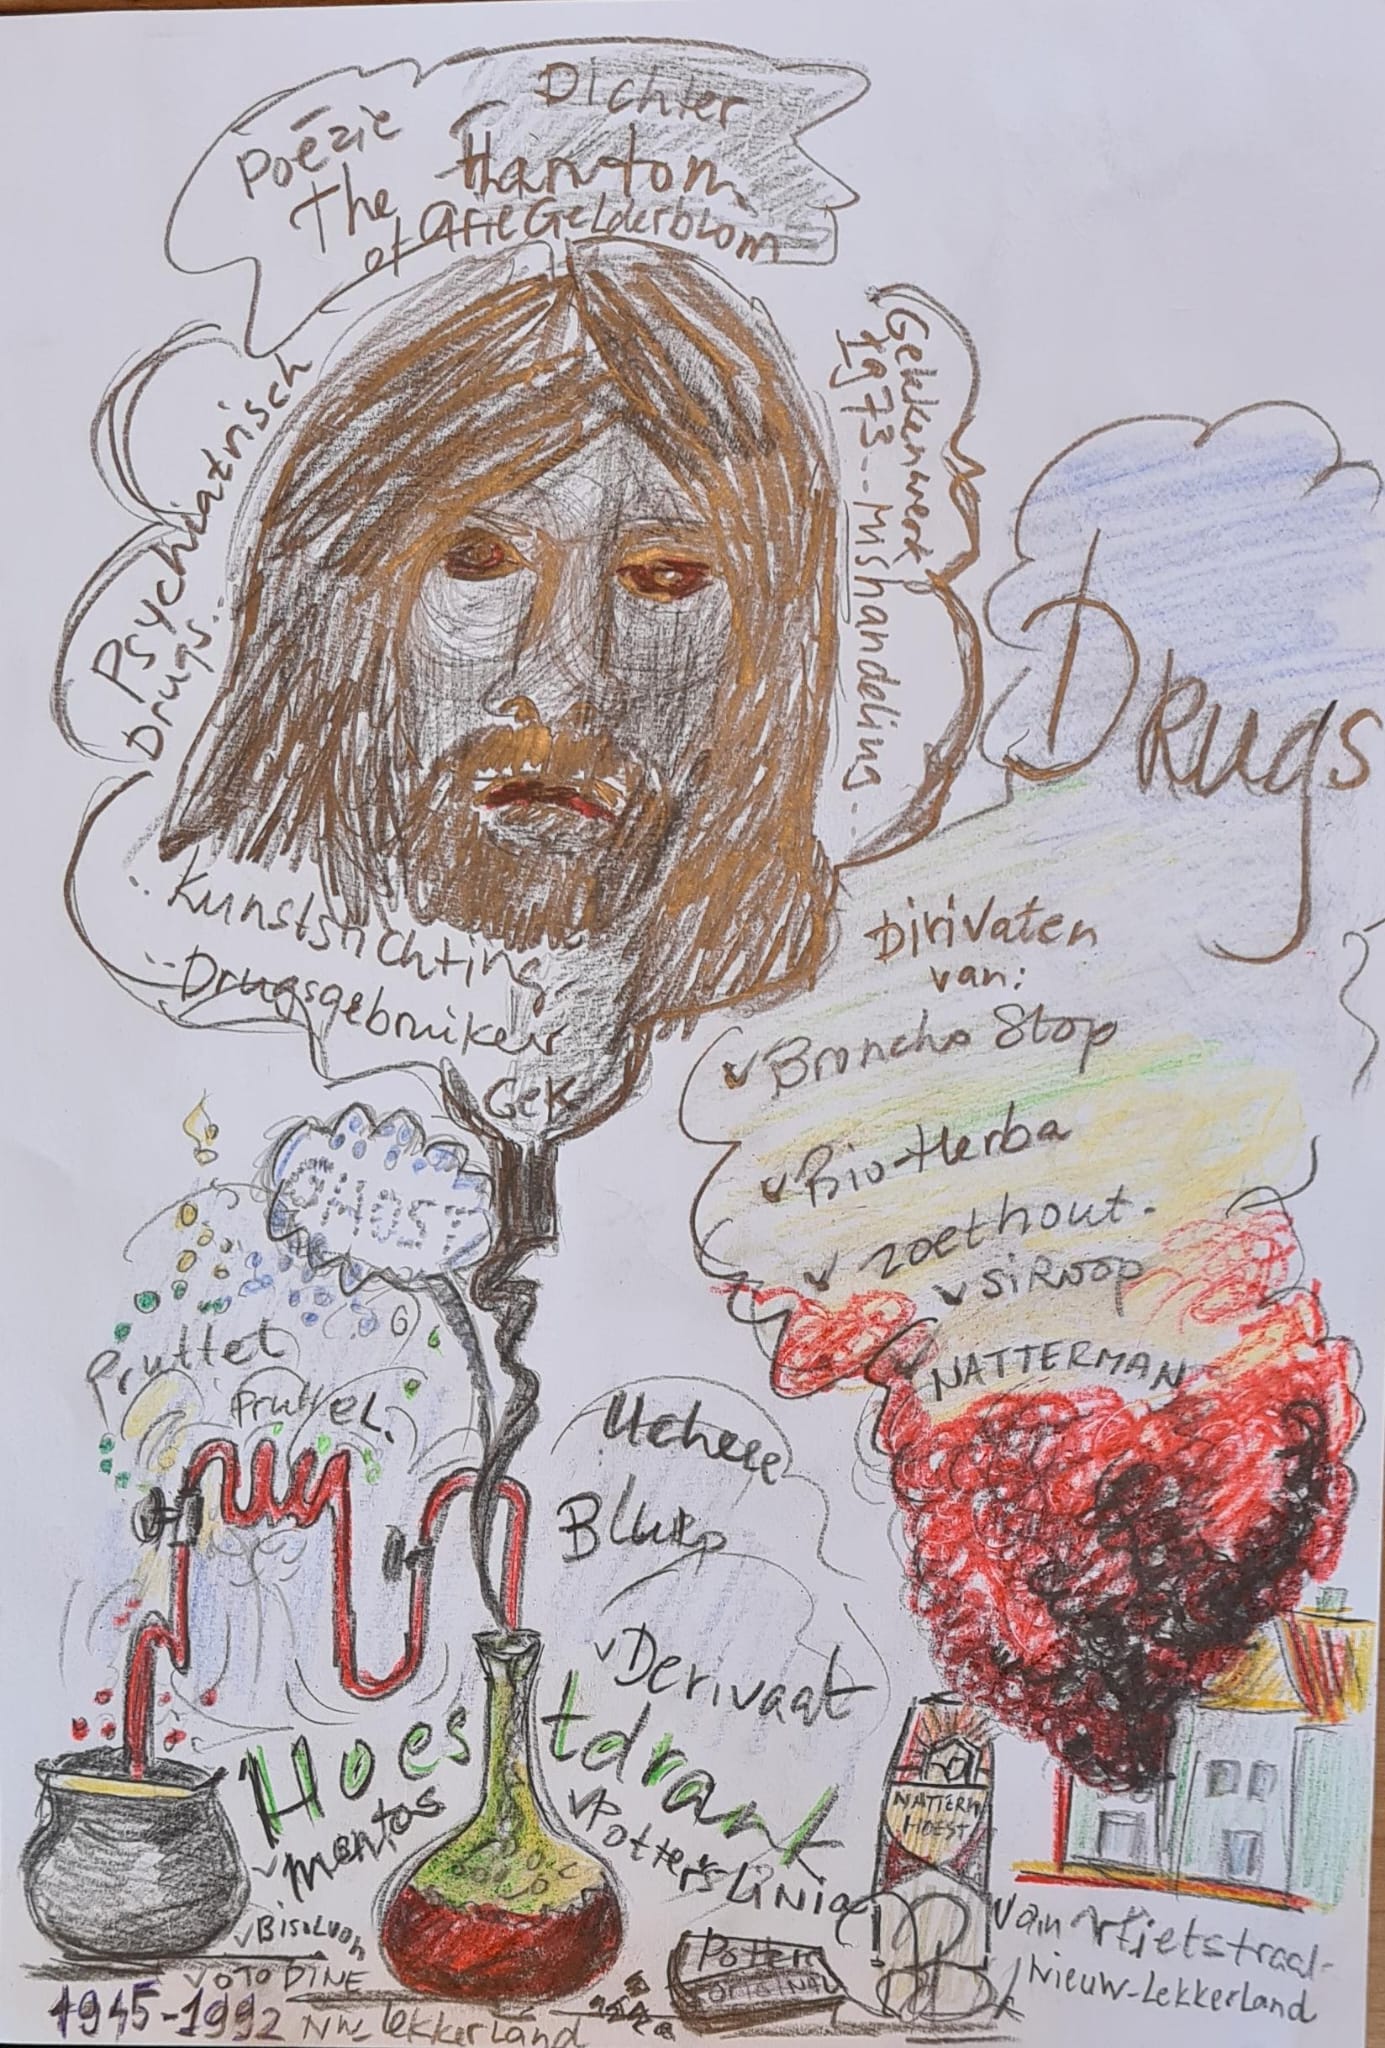 Dichter
Poëzie
The Hantom
of Arie Gelderblom
Gekkenwerk
1973... Mishandeling...
Psychiatrisch
Drugs...
Drugs
.. Kunststichting
..Drugsgebruiker
Gek
Dirivaten
van:
Broncho Stop
Bio-Herba
zoethout-
siroop
NATTERMAN
GHOST
Pruttel
Pruttel.
Uchee
Blurp
Derivaat
Hoestdrank
mentos
Potter's Linia
Bisolvon
OTO DINE
NATTERM
HOEST
Potter
ORIGINAL
1945-1992 Nw-Lekkerland
Nieuw-Lekkerland